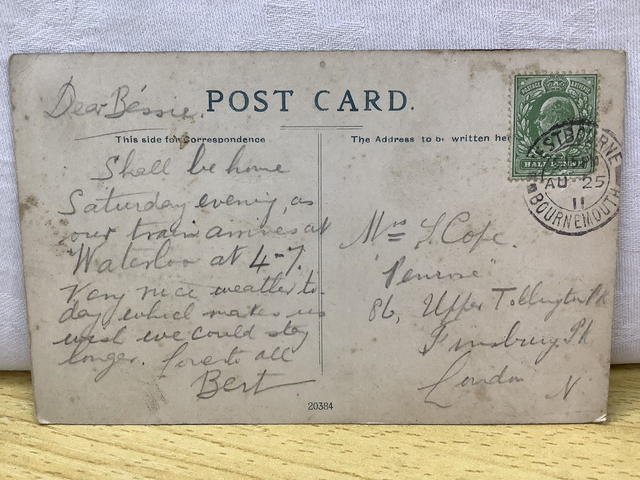 Dear Bessie.
POST CARD.
This side for Correspondence
The Address to be written he
Shall be home
Saturday evening, as
our train arrives at
Waterloo at 4-7.
Very nice weather to-
day which makes us
wish we could stay
longer. Love to all
Bert
Mrs S. Cope.
"Penrose"
86, Upper Tollington Pk
Finsbury Pk
London N
HALF PENNY
WESTBOURNE
AU 25
11
BOURNEMOUTH
20384